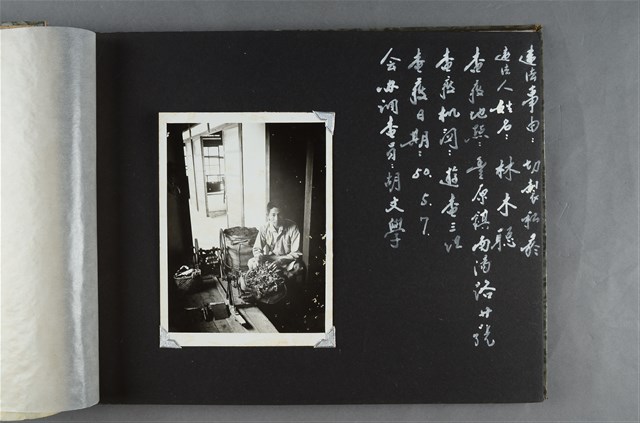 違法事由：切製私菸
違法人姓名：林木聰
查獲地點：豐原鎮南陽路廿號
查獲機關：遊查三組
查獲日期：50.5.7.
会办调查員：胡文學